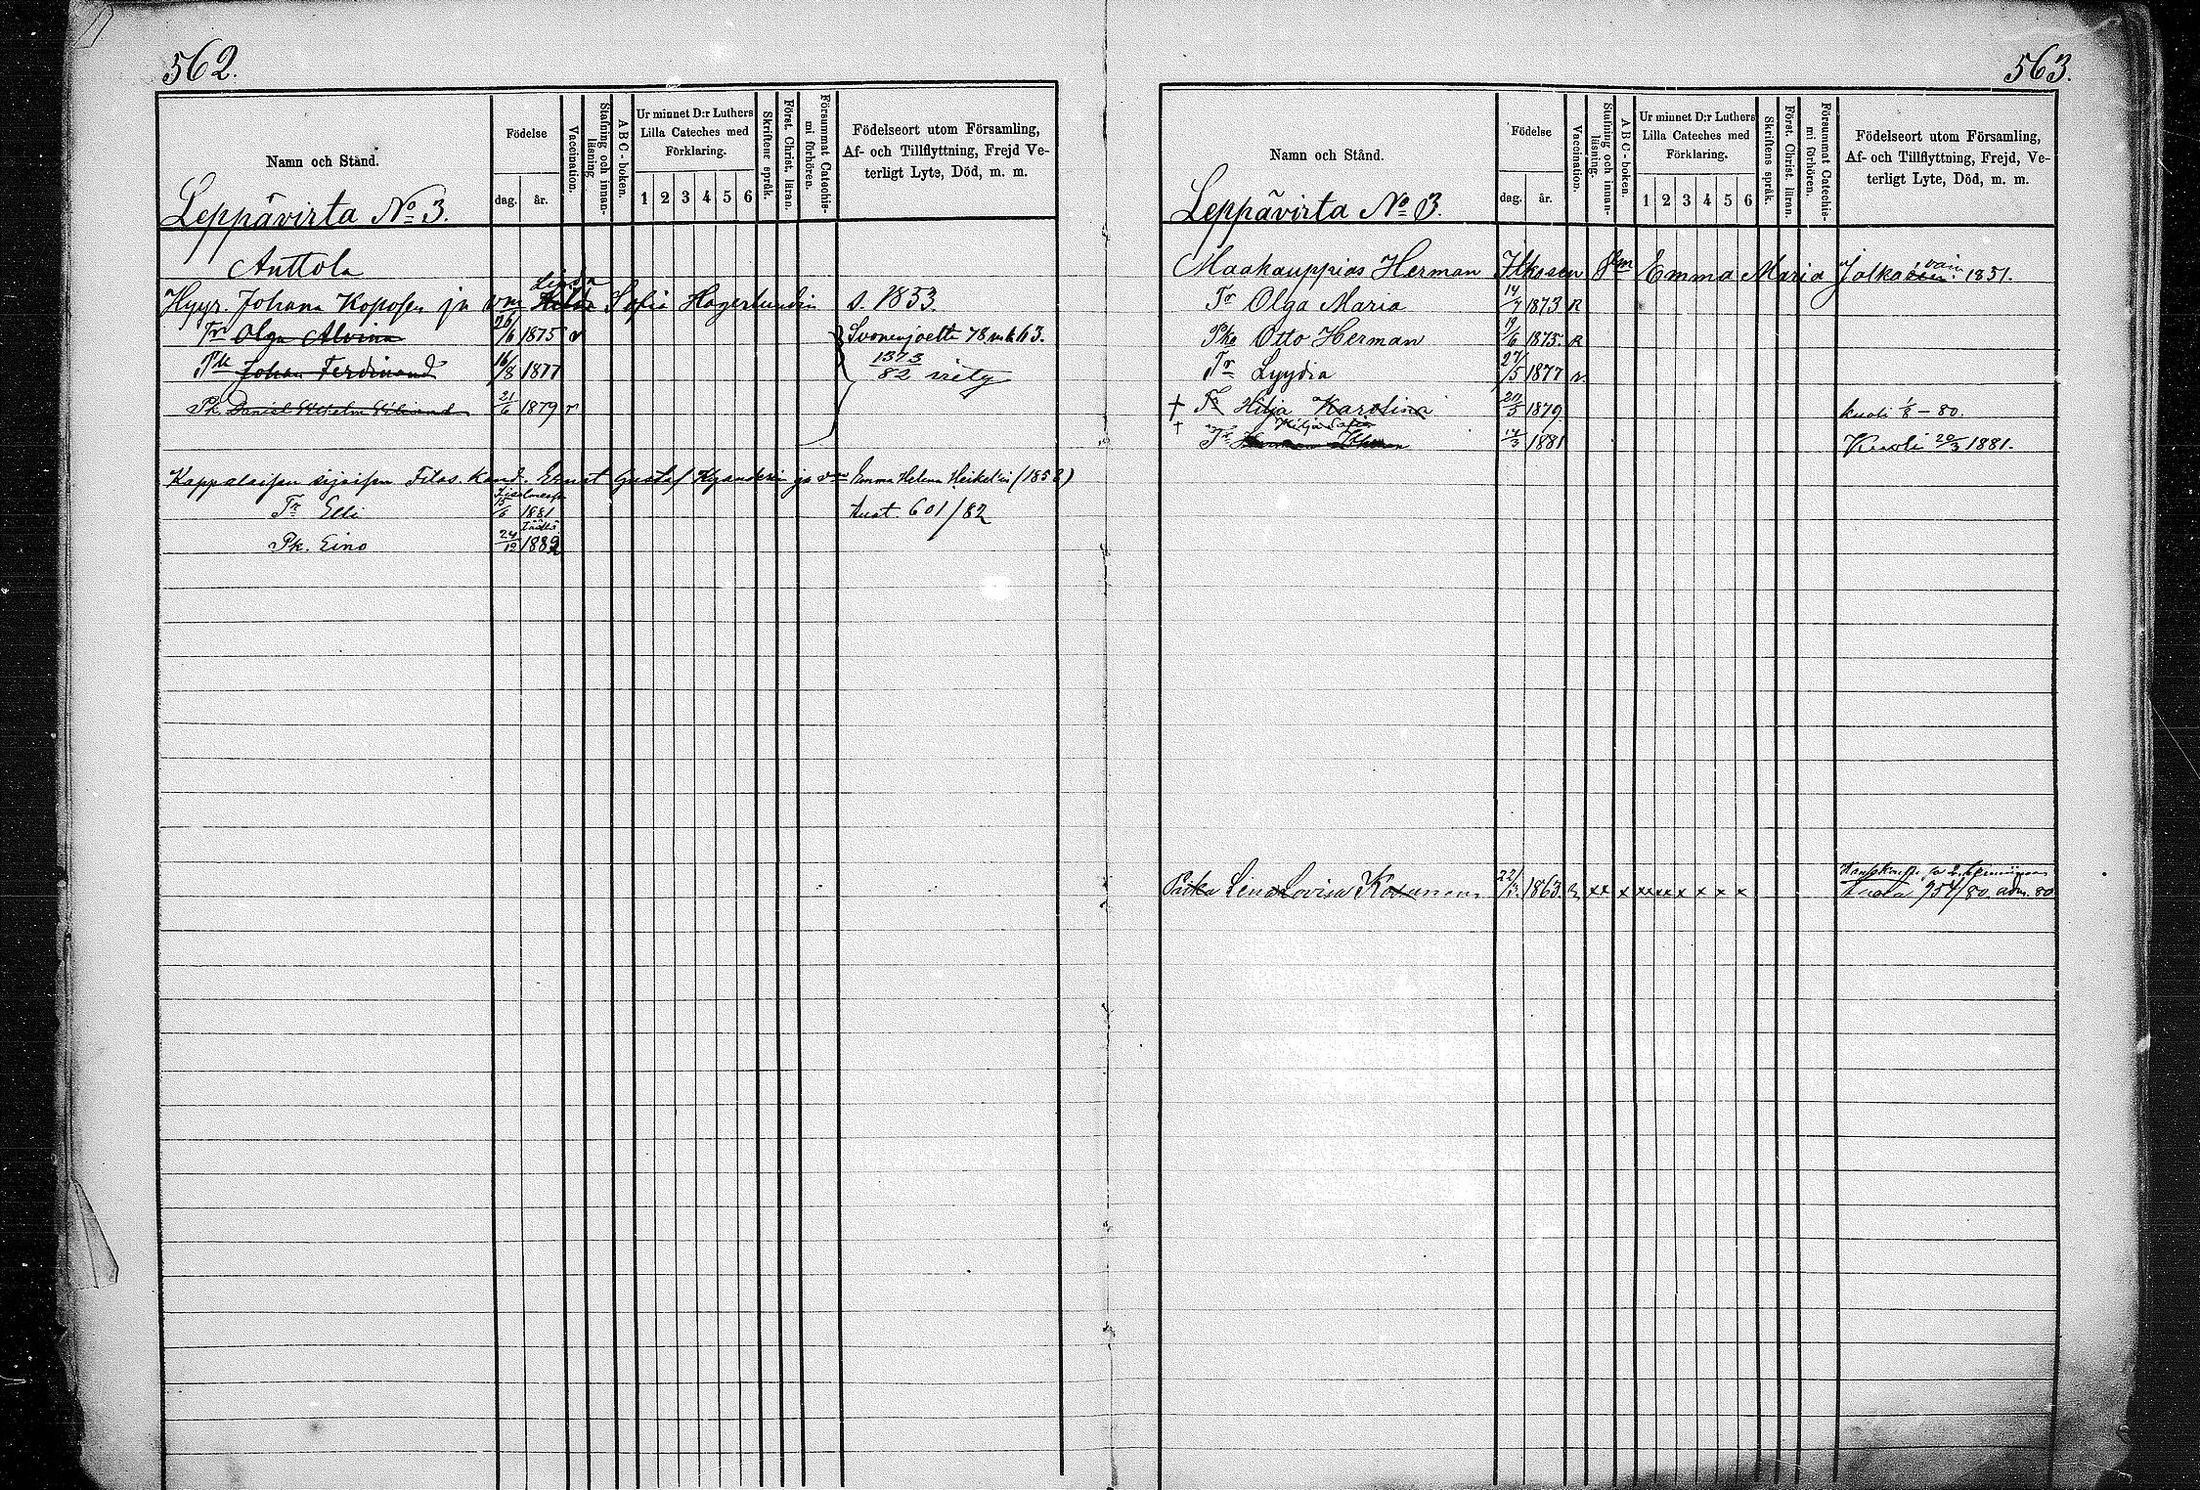 562.
Namn och Stånd.
Födelse
dag. år.
Vaccination.
Stafning och innan-läsning
A B C - boken.
Ur minnet D:r Luthers
Lilla Cateches med
Förklaring.
1 2 3 4 5 6
Skriftens språk.
Först. Christ. läran.
Försummat Catechis-
mi förhören.
Födelseort utom Församling,
Af- och Tillflyttning, Frejd Ve-
terligt Lyte, Död, m. m.
Leppävirta No 3.
Anttola
Hyyr. Johana Koposen ja vm Sofia Hagerlundin s. 1853.
Tr Olga Alvina 26/6 1875 v Suonenjoelta 78 mk 63.
Pk Johan Ferdinand 16/8 1877 1373/82
Pk Daniel 21/6 1879 v
Kappalaisen sijaisen Filos. Kand. Ernst Gustaf Kyanderin ja vm Emma Helena Heikel'in (1852)
Tr Elli 15/6 1881 601/82
Pk. Eino 24/12 1882
563.
Namn och Stånd.
Födelse
dag. år.
Vaccination.
Stafning och innan-läsning.
A B C - boken.
Ur minnet D:r Luthers
Lilla Cateches med
Förklaring.
1 2 3 4 5 6
Skriftens språk.
Först. Christ. läran.
Försummat Catechis-
mi förhören.
Födelseort utom Församling,
Af- och Tillflyttning, Frejd, Ve-
terligt Lyte, Död, m. m.
Leppävirta No 3.
Maakauppias Herman Itkosen Emma Maria 1851.
Tr Olga Maria 14/7 1873 R
Pka Otto Herman 19/6 1875. R
Tr Lyydia 27/5 1877 R.
† Tr Hilja Karolina 20/5 1879. kuoli 1/8 - 80.
† Tr Hilja Sofia 14/3 1881 Kuoli 20/3 1881.
Piika Lena Lovisa Kosunen 22/3. 1863. R xx x xx xx x x x x 954/80. adm. 80